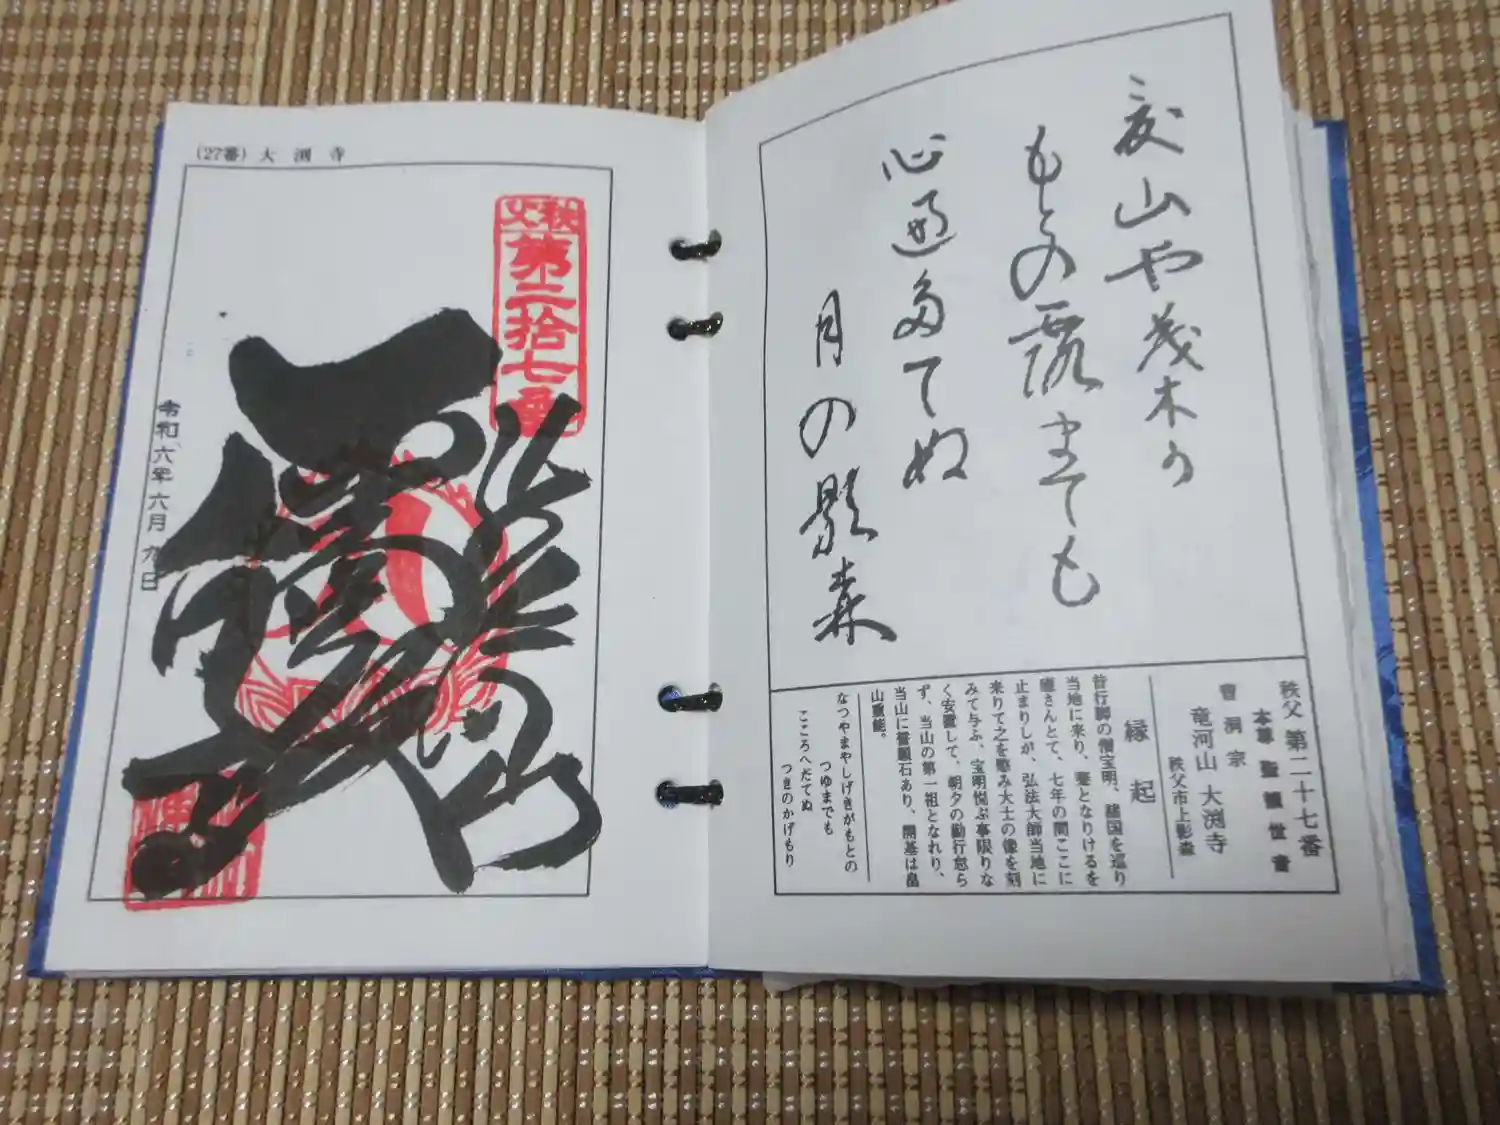 (27番) 大渕寺
秩父
第二拾七番
令和六年六月九日
夏山や茂木の
もとの露までも
心遍多てぬ
月の影森
秩父第二十七番
本尊 聖観世音
曹洞宗
竜河山 大渕寺
秩父市上影森
縁起
昔行脚の僧宝明、諸国を巡り
当地に来り、躄となりけるを
癒さんとて、七年の間ここに
止まりしが、弘法大師当地に
来りて之を愍み大士の像を刻
みて与ふ、宝明悦ぶ事限りな
く安置して、朝夕の勤行怠ら
ず、当山の第一祖となれり、
当山に誓願石あり、開基は畠
山重能。
なつやまやしげきがもとの
つゆまでも
こころへだてぬ
つきのかげもり